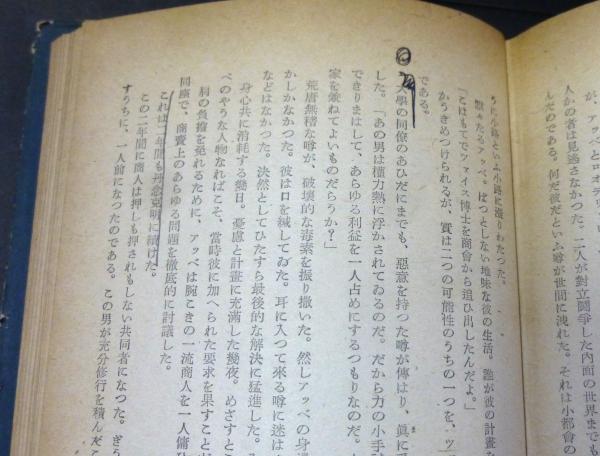 へとロオデリ
人かの者は見逃さなかつた。二人が對立鬪爭した内面の世界までも
んだのである。何だ彼だといふ噂が世間に洩れた。それは小都會の
うに小路といふ小路に滲りわたつた。
默々たるアッベ。ぱつとしない地味な彼の生活。誰が彼の計畫を
「こはもてでツァイス博士を商會から追ひ出したんだよ。」
かうきめつけられるが、實は二つの可能性のうちの一つを、ツ
である。
大學の同僚のあひだにまでも、惡意を持つた噂が傳はり、眞に
した。「あの男は權力熱に浮かされてゐるのだ。だから力の小手
できりまはして、あらゆる利益を一人占めにするつもりなのだ。
家を兼ねてよいものだらうか?」
荒唐無稽な噂が、破壞的な毒素を振り撒いた。然しアッベの身邊
かしかなかつた。彼は口を緘してゐた。耳に入つて來る噂に迷は
などはなかつた。決然としてひたすら最後的な解決に猛進した。
身心共に消耗する幾日。憂慮と計畫に充滿した幾夜。めざすと
べのやうな人物なればこそ、當時彼に加へられた要求を果すこと
肩の負擔を免れるために、アッベは腕こきの一流商人を一人傭
同座で、商賣上のあらゆる問題を徹底的に討議した。
これは二年間も丹念克明に續けた。
この二年間に商人は押しも押されもしない共同者になつた。ぎう
すうちに、一人前になつたのである。この男が充分修行を積んだ